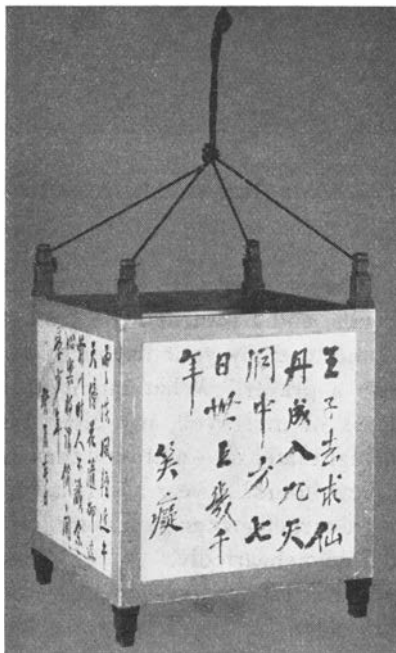 王子去求仙
丹成入九天
洞中方七
日世上幾千
年
笑癡
雲淡風輕近午
天傍花隨柳過
前川時人不識余
心樂將謂偷閒
學少年
春日